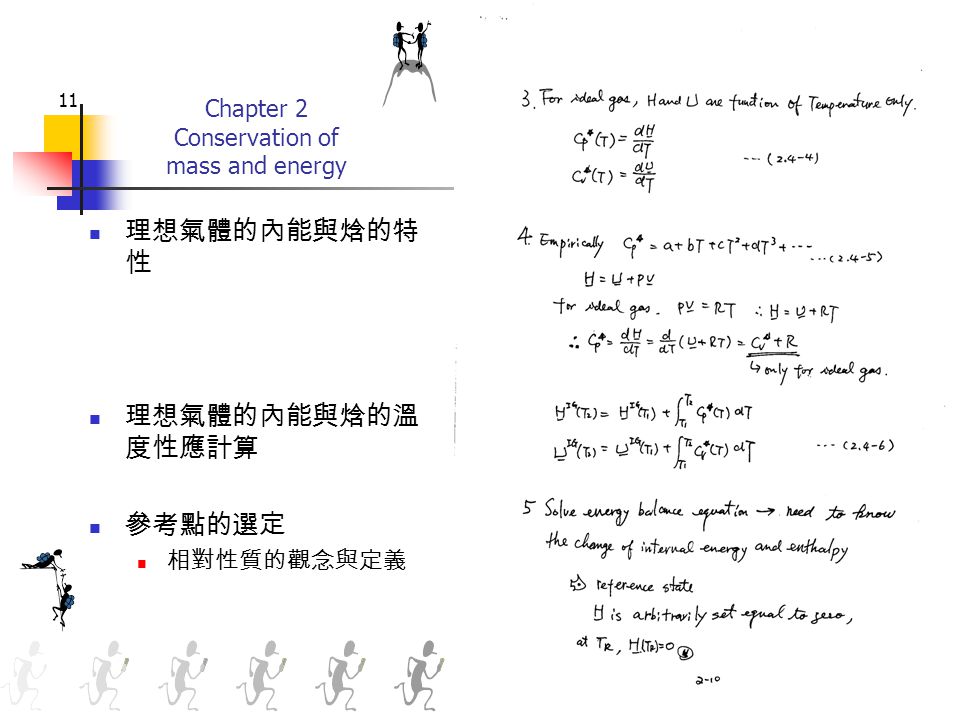 11
Chapter 2
Conservation of
mass and energy
理想氣體的內能與焓的特
性
理想氣體的內能與焓的溫
度性應計算
參考點的選定
相對性質的觀念與定義
3. For ideal gas, H and U are function of Temperature only.
Cp*(T) = dH/dT
--- (2.4-4)
Cv*(T) = dU/dT
4. Empirically Cp* = a + bT + cT² + dT³ + ---
---(2.4-5)
H = U + PV
for ideal gas. PV = RT ∴ H = U + RT
∴ Cp* = dH/dT = d/dT (U + RT) = Cv* + R
↳ only for ideal gas.
H^IG(T2) = H^IG(T1) + ∫_T1^T2 Cp*(T) dT
U^IG(T2) = U^IG(T1) + ∫_T1^T2 Cp*(T) dT
--- (2.4-6)
5 Solve energy balance equation → need to know
the change of internal energy and enthalpy
reference state
H is arbitrarily set equal to zero,
at TR, H(TR)=0
2-10